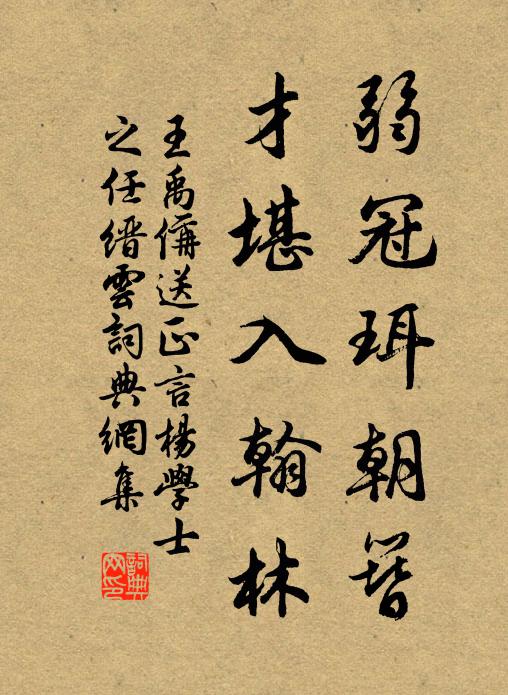 弱冠珥朝簪
才堪入翰林
王禹偁送正言楊學士
之任縉雲詞典網集
詞典
网印